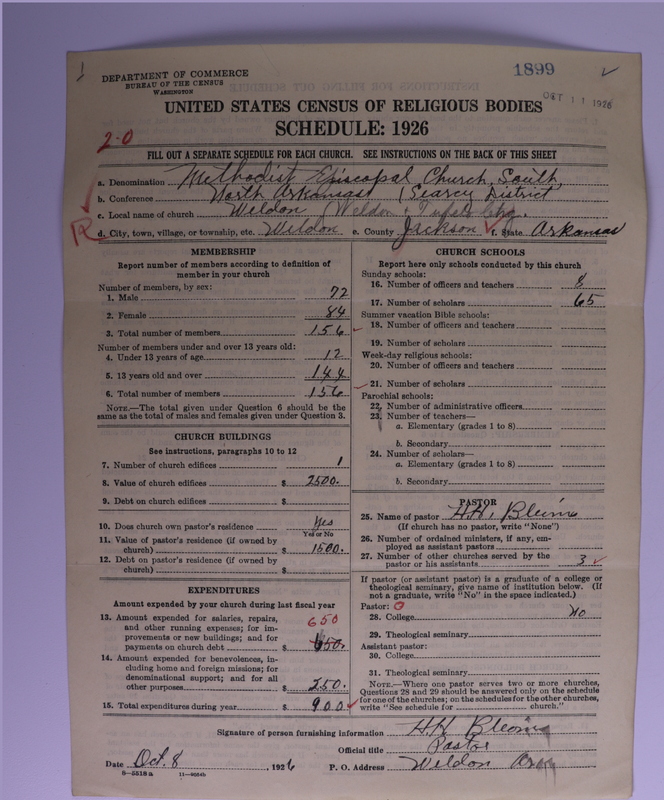 1899
DEPARTMENT OF COMMERCE
BUREAU OF THE CENSUS
WASHINGTON
OCT 11 1926
UNITED STATES CENSUS OF RELIGIOUS BODIES
SCHEDULE: 1926
2-0
FILL OUT A SEPARATE SCHEDULE FOR EACH CHURCH. SEE INSTRUCTIONS ON THE BACK OF THIS SHEET
a. Denomination Methodist Episcopal Church, South,
b. Conference North Arkansas (Searcy District
c. Local name of church Weldon (Weldon
R
d. City, town, village, or township, etc. Weldon e. County Jackson f. State Arkansas
MEMBERSHIP
Report number of members according to definition of
member in your church
Number of members, by sex:
1. Male 72
2. Female 84
3. Total number of members 156
Number of members under and over 13 years old:
4. Under 13 years of age 12
5. 13 years old and over 144
6. Total number of members 156
NOTE.—The total given under Question 6 should be the
same as the total of males and females given under Question 3.
CHURCH BUILDINGS
See instructions, paragraphs 10 to 12
7. Number of church edifices 1
8. Value of church edifices $ 2500.
9. Debt on church edifices $
10. Does church own pastor's residence Yes
Yes or No
11. Value of pastor's residence (if owned by
church) $ 1500.
12. Debt on pastor's residence (if owned by
church) $
EXPENDITURES
Amount expended by your church during last fiscal year
13. Amount expended for salaries, repairs, 650
and other running expenses; for im-
provements or new buildings; and for
payments on church debt $ 650.
14. Amount expended for benevolences, in-
cluding home and foreign missions; for
denominational support; and for all
other purposes $ 250.
15. Total expenditures during year $ 900
CHURCH SCHOOLS
Report here only schools conducted by this church
Sunday schools:
16. Number of officers and teachers 8
17. Number of scholars 65
Summer vacation Bible schools:
18. Number of officers and teachers
19. Number of scholars
Week-day religious schools:
20. Number of officers and teachers
21. Number of scholars
Parochial schools:
22. Number of administrative officers
23. Number of teachers—
a. Elementary (grades 1 to 8)
b. Secondary
24. Number of scholars—
a. Elementary (grades 1 to 8)
b. Secondary
PASTOR
25. Name of pastor H.H. Blevins
(If church has no pastor, write "None")
26. Number of ordained ministers, if any, em-
ployed as assistant pastors
27. Number of other churches served by the
pastor or his assistants 3
If pastor (or assistant pastor) is a graduate of a college or
theological seminary, give name of institution below. (If
not a graduate, write "No" in the space indicated.)
Pastor: 0
28. College No
29. Theological seminary
Assistant pastor:
30. College
31. Theological seminary
NOTE.—Where one pastor serves two or more churches,
Questions 28 and 29 should be answered only on the schedule
for one of the churches; on the schedules for the other churches,
write "See schedule for church."
Signature of person furnishing information H.H. Blevins
Official title Pastor
Date Oct. 8, 1926 P. O. Address Weldon Ark
8-5518a 11-4684b